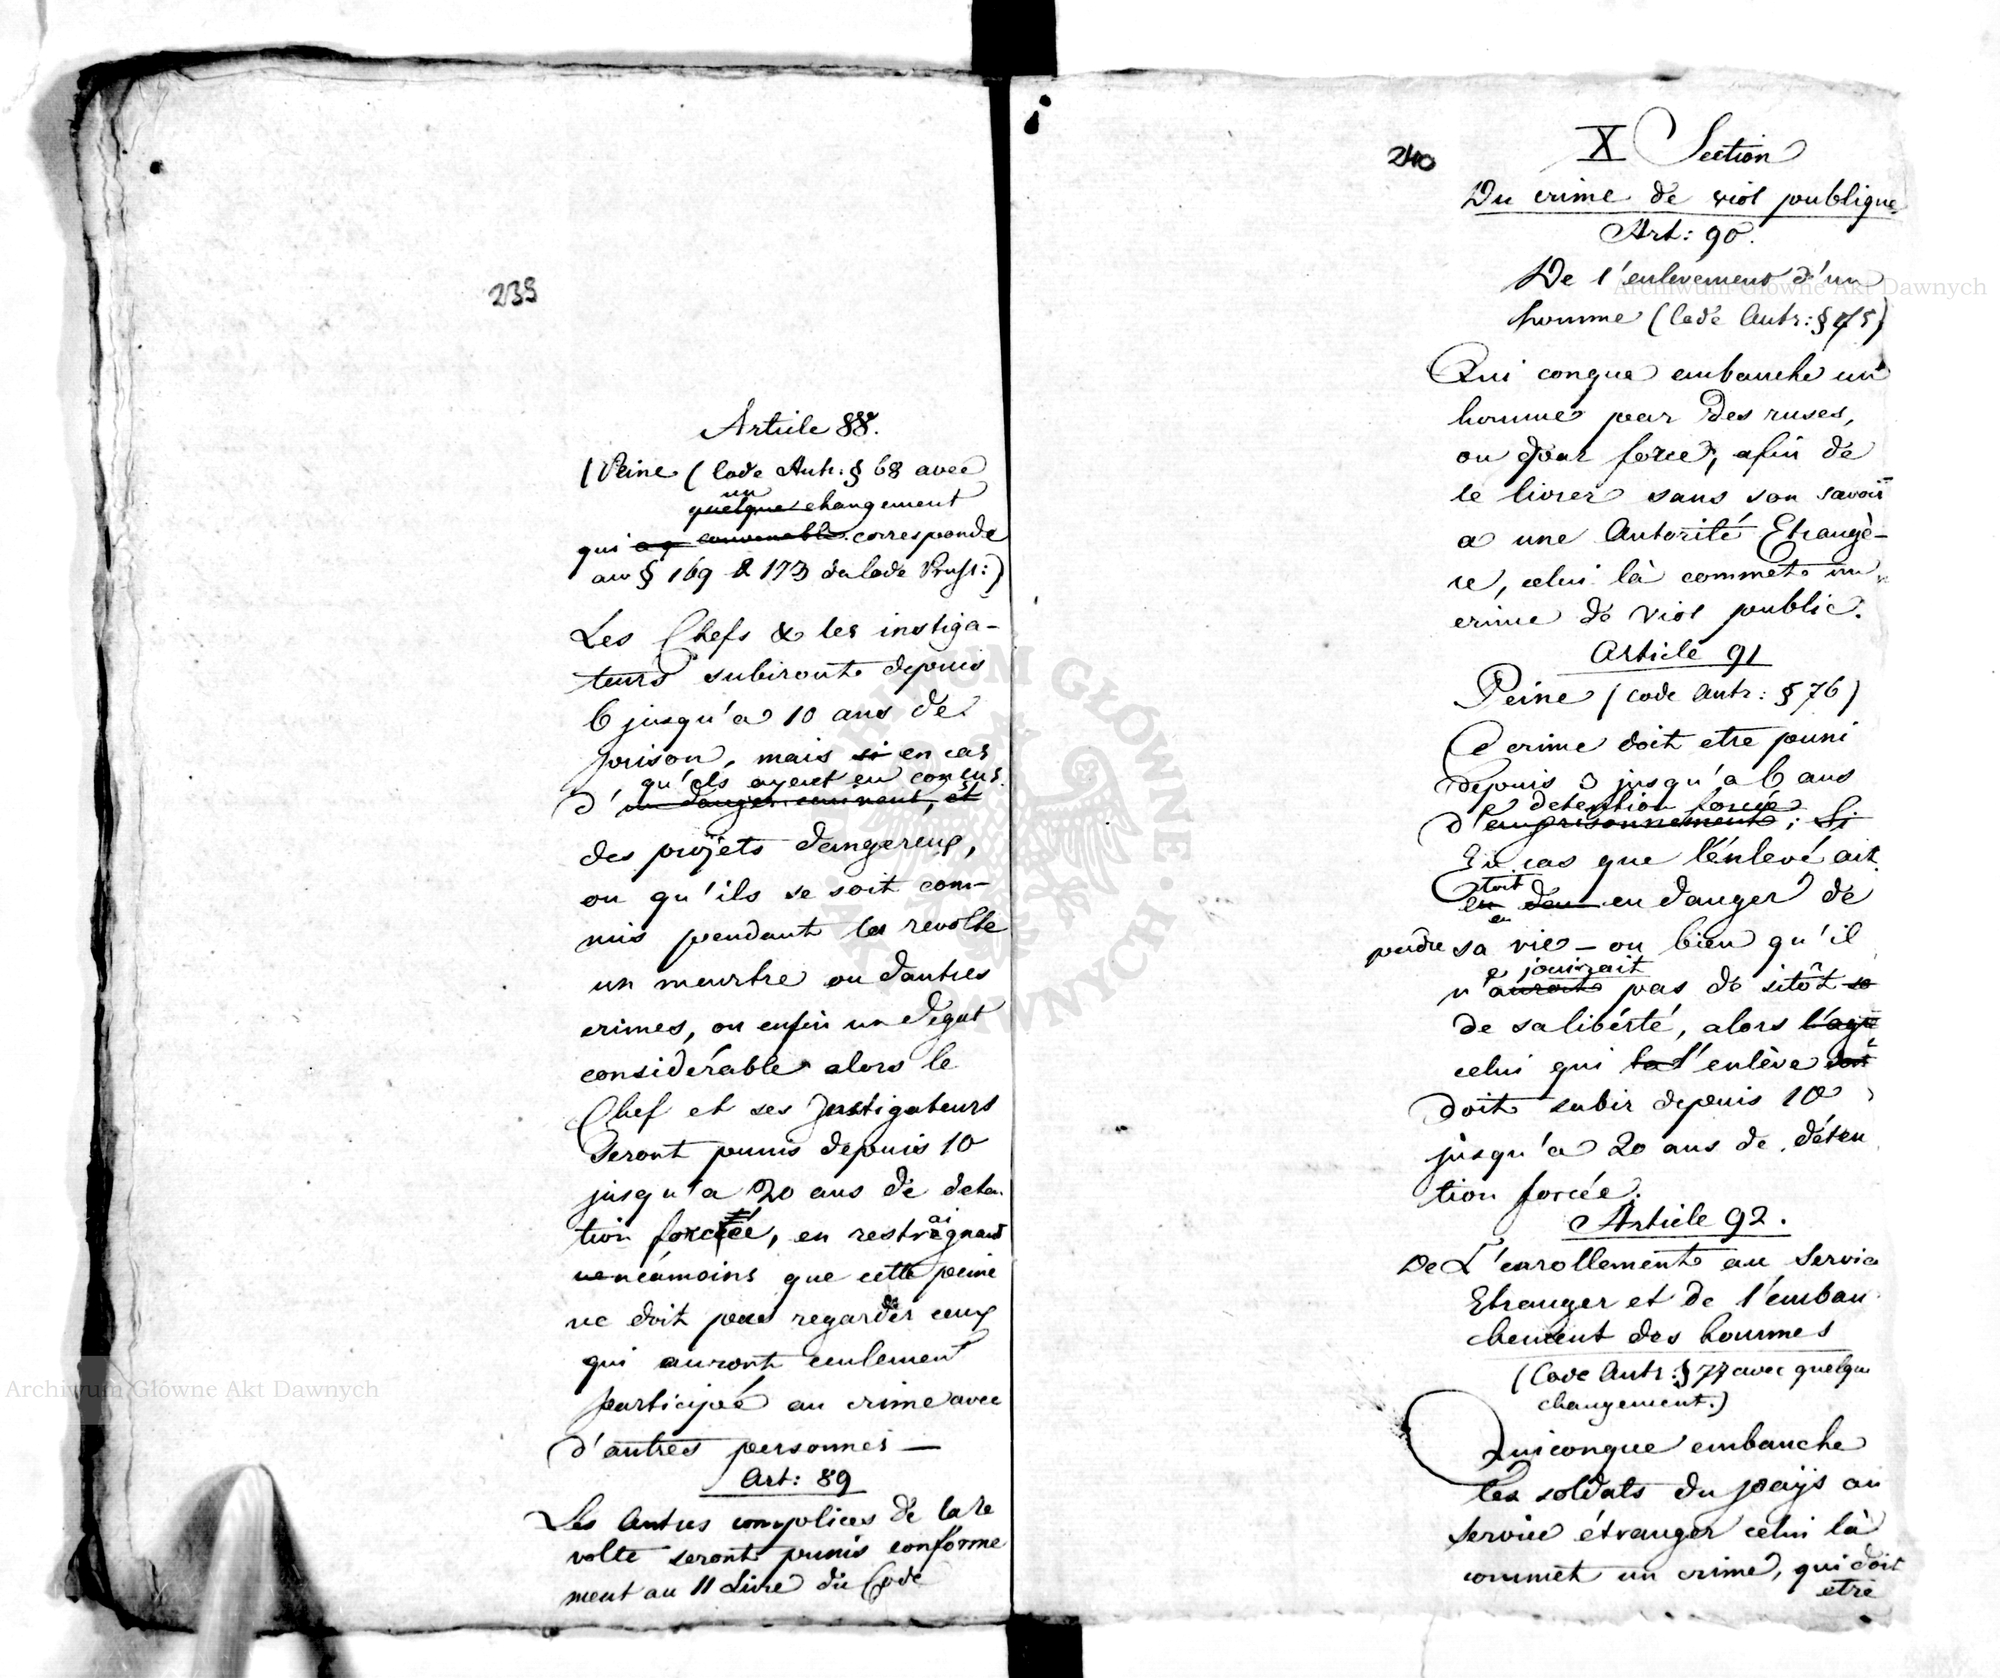 239
Article 88.
(Peine (Code Autr: § 68 avec
un
quelque changement
qui convenable corresponde
au § 169 & 173 du Code Pruss:)
Les Chefs & les instiga-
teurs subiront depuis
6 jusqu'a 10 ans de
prison, mais si en cas
qu'ils ayent eu conçus
d'un danger eminent, et
des projets dangereux,
ou qu'ils se soit com-
mis pendant la revolte
un meurtre ou d'autres
crimes, ou enfin un degat
considérable alors le
Chef et ses Instigateurs
seront punis depuis 10
jusqu'a 20 ans de deten
tion forcée, en restraignant
neamoins que cette peine
ne doit pas regarder ceux
qui auront seulement
participé au crime avec
d'autres personnes —
Art: 89
Les Autres complices de la re
volte seront punis conforme
ment au II Livre du Code
240
X Section
Du crime de viol publique
Art: 90.
De l'enlevement d'un
homme (Code Autr: § 75)
Qui conque embauche un
homme par des ruses,
ou par force, afin de
le livrer sans son savoir
a une Autorité Etrangè-
re, celui là commet un
crime de viol public.
Article 91
Peine (code Autr: § 76)
Ce crime doit etre puni
depuis 3 jusqu'a 6 ans
e detention forcée
d'emprisonnement; Si
En cas que l'énlevé ait
toit
eu en danger de
perdre sa vie – ou bien qu'il
e jouirait
n'auroit pas de sitôt so
de sa libérté, alors l'agr
celui qui la l'enlève doit
doit subir depuis 10
jusqu'a 20 ans de déten
tion forcée.
Article 92.
De L'enrollement au Service
Etranger et de l'embau
chement des hommes
(Code Autr: § 77 avec quelque
changement.)
Quiconque embauche
les soldats du pays au
Service étranger celui là
commet un crime, qui doit
etre
Archiwum Główne Akt Dawnych
Archiwum Główne Akt Dawnych
ARCHIWUM GŁÓWNE AKT DAWNYCH